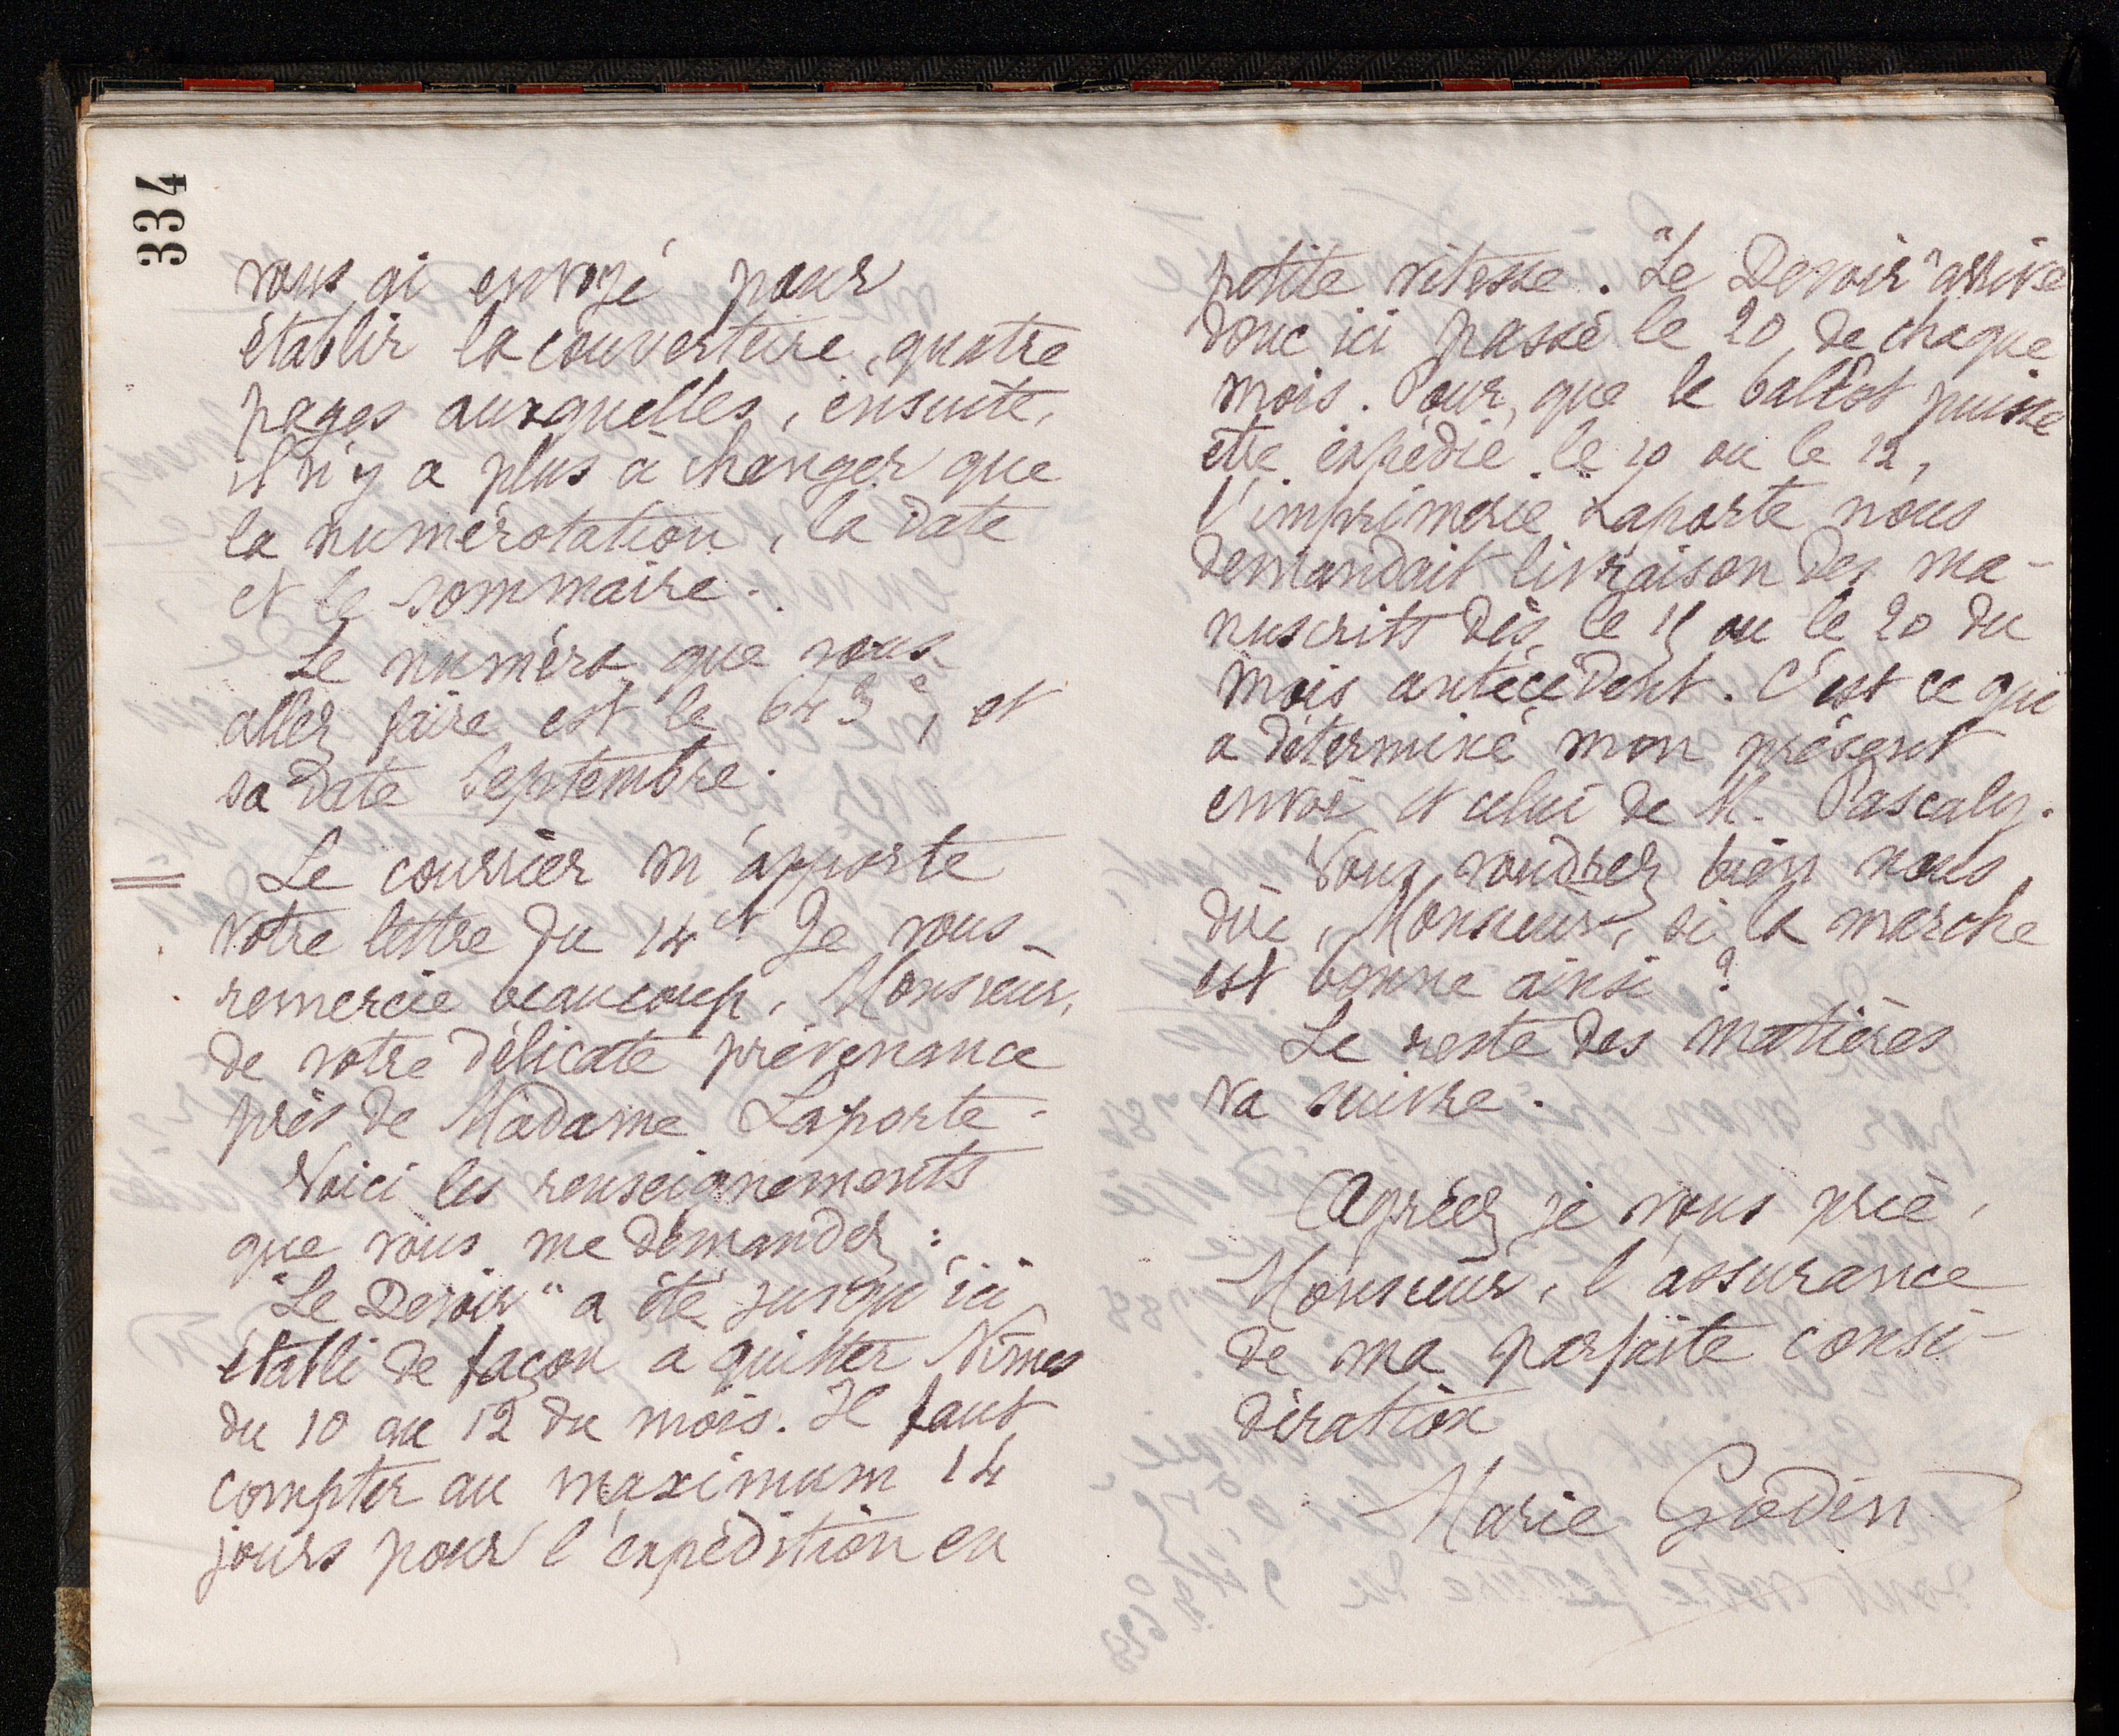 334
vous ai envoyé pour
établir la couverture, quatre
pages auxquelles, ensuite,
il n'y a plus à changer que
la numérotation, la date
et le sommaire.
Le numéro que vous
allez faire est le 643e, et
sa date Septembre.
Le courrier m'apporte
votre lettre du 14 ct Je vous
remercie beaucoup, Monsieur,
de votre délicate prévenance
près de Madame Laporte.
Voici les renseignements
que vous me demandez :
"Le Devoir" a été jusqu'ici
établi de façon à quitter Nîmes
du 10 au 12 du mois. Il faut
compter au maximum 14
jours pour l'expédition en
petite vitesse. "Le Devoir" arrive
donc ici passé le 20 de chaque
mois. Pour que le ballot puisse
être expédié le 10 ou le 12,
l'imprimerie Laporte nous
demandait livraison des ma-
nuscrits dès le 15 ou le 20 du
mois antécédent. C'est ce qui
a déterminé mon présent
envoi et celui de M. Pascaly.
Vous voudrez bien nous
dire, Monsieur, si la marche
est bonne ainsi ?
Le reste des matières
va suivre.
Agréez je vous prie,
Monsieur, l'assurance
de ma parfaite consi-
dération
Marie Godin